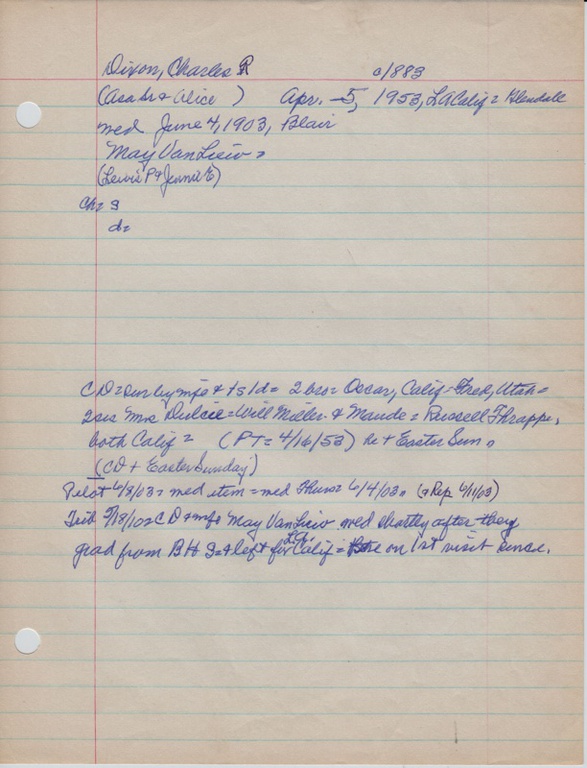 Dixon, Charles R c/883
(Asa Sr & Alice ) Apr. 5, 1953, LA Calif = Glendale
med June 4, 1903, Blair
May Van =
(Lewis P & Jennie E)
Ch = s
d =
CD = sur by mfs & 1s 1d = 2 bro = Oscar, Calif = Fred, Utah =
2 sis Mrs Dulcie = Will Miller & Maude = Russell Thrapp,
both Calif = (PT = 4/16/53) he + Easter Sun.
(CD + Easter Sunday)
Pilot 6/8/03 = med item = med Thurs = 6/4/03 = (& Rep 6/11/03)
Trib 5/18/10 = CD & mfs May Van med shortly after they
grad from BHS = & left for LA. Calif = on 1st visit since.